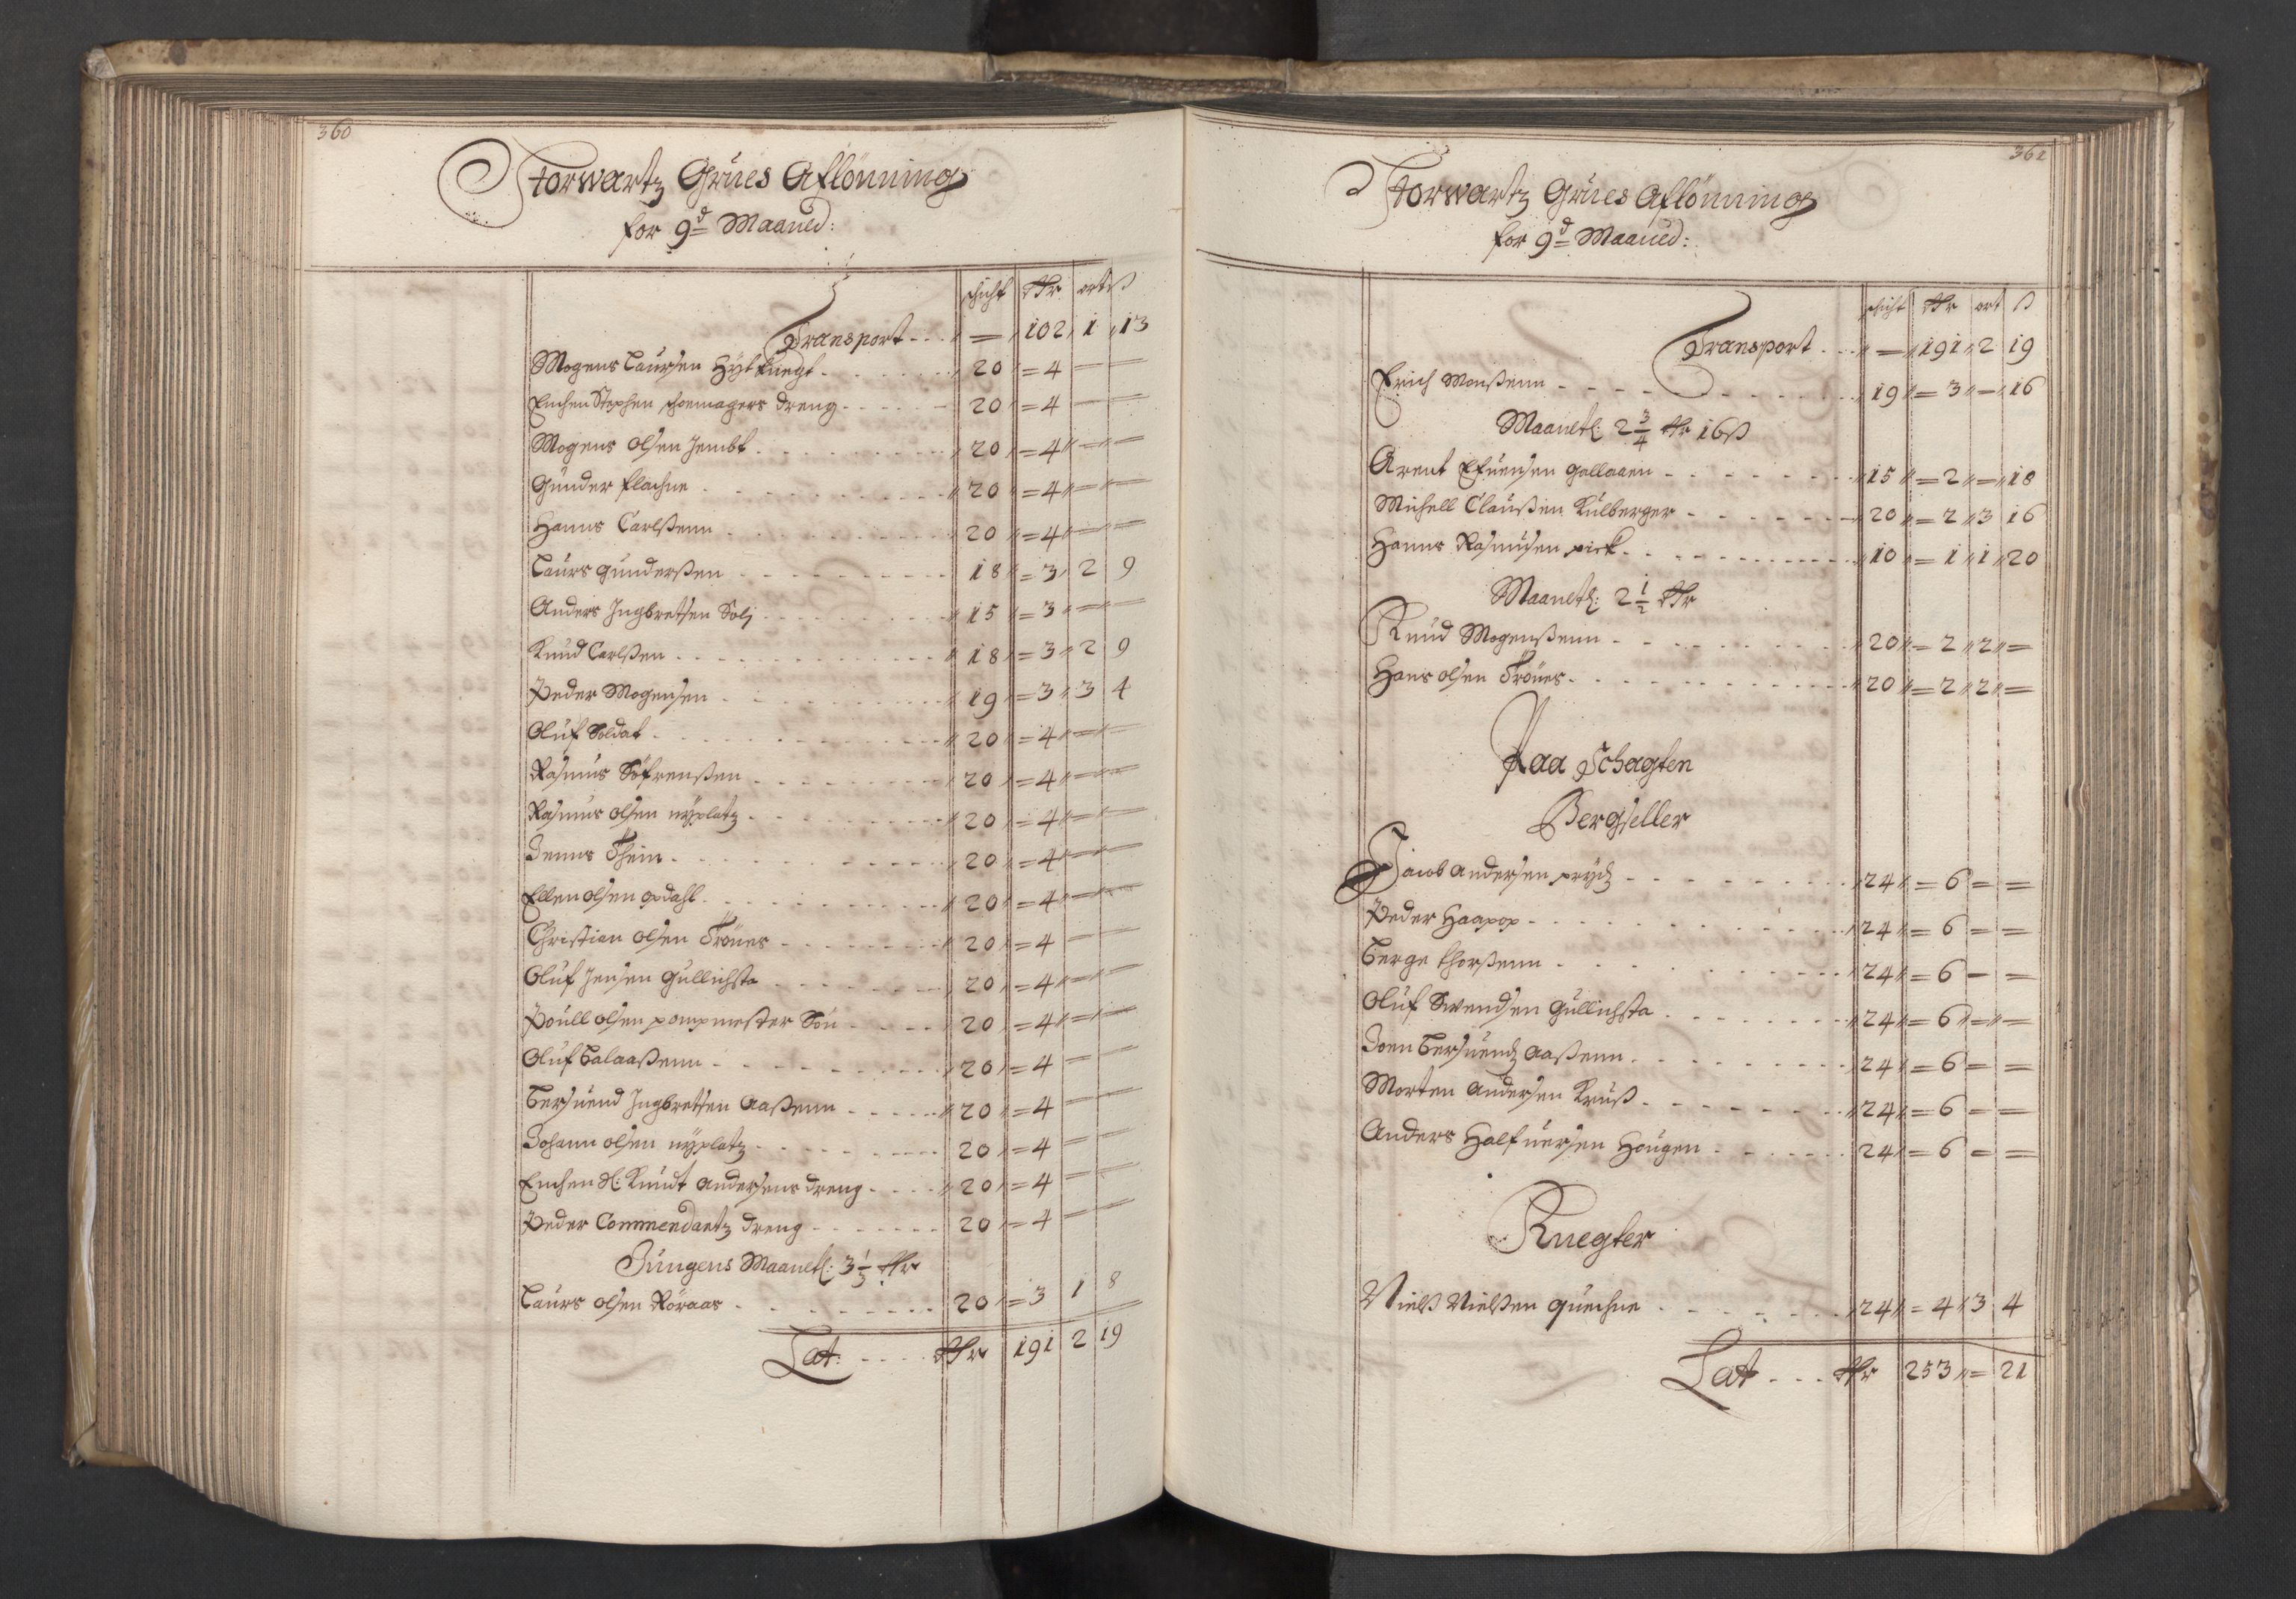 360
Storwartz Grües Aflönning
for 9d Maaned:
schicht Rdr ort ß
Transport - - - " — " 102 " 1 " 13
Mogens Laursen Hÿtknegt - - - 20 " = 4 — —
Enchen Stephen schoemagers dreng - - - 20 " = 4 — —
Mogens olsen Jembt - - - 20 " = 4 " — " —
Gunder flachne - - - 20 " = 4 " — " —
Hanns Carlßenn - - - 20 " = 4 " — " —
Laurs gunderßen - - - 18 " = 3 " 2 9
Anders Ingbretsen Solj - - - 15 " = 3 " — " —
Knud Carlßen - - - 18 " = 3 " 2 9
Peder Mogensen - - - 19 " = 3 " 3 4
Oluf Soldat - - - 20 " = 4 " — " —
Rasmus Söfrenßen - - - 20 " = 4 " — " —
Rasmus olsen nÿplatz - - - 20 " = 4 " — " —
Jenns Thein - - - 20 " = 4 " — " —
Ellen olsen opdahl - - - 20 " = 4 " — " —
Christian olsen Trönes - - - 20 " = 4 — —
Oluf Jensen Gullichsta - - - 20 " = 4 " — " —
Poull olsen pompmester Sön - - - 20 " = 4 " — " —
Oluf Balaaßenn - - - 20 " = 4 — —
Bersuend Ingbretsen Aaßenn - - - 20 " = 4 — —
Johann olsen nÿplatz - - - 20 " = 4 — —
Enchen Sl: Knudt Andersens dreng - - - 20 " = 4 — —
Peder Commendantz dreng - - - 20 " = 4 — —
Jungens Maanetl: 3 1/3 Rdr
Laurs olsen Röraas - - - 20 " = 3 1 8
Lat: - - - Rdr 191 2 19
361
Storwartz Grües Aflönning
for 9d Maaned:
schicht Rdr ort ß
Transport - - - " — " 191 " 2 19
Erich Monßenn - - - 19 " = 3 " — " 16
Maanetl: 2 3/4 Rdr 16 ß
Arent Efuensen gallaaen - - - 15 " = 2 " — " 18
Michell Claußen Kulberger - - - 20 " = 2 " 3 16
Hanns Rasmusen pick - - - 10 " = 1 " 1 " 20
Maanetl: 2 1/2 Rdr
Knud Mogenßenn - - - 20 " = 2 " 2 " =
Hans olsen Trönes - - - 20 " = 2 " 2 " =
Paa Schagten
Bergseller
Jacob Andersen prÿdz - - - 24 " = 6 = =
Peder Haapop - - - 24 " = 6 = =
Berge thorßenn - - - 24 " = 6 = =
Oluf Swendsen Gullichsta - - - 24 " = 6 " = " =
Joen Bersuendz Aaßenn - - - 24 " = 6 = =
Morten Andersen Kruß - - - 24 " = 6 = =
Anders Halfuersen Hougen - - - 24 " = 6 = =
Knegter
Nielß Nielßen quechne - - - 24 " = 4 " 3 4
Lat - - - Rdr 253 " = 21